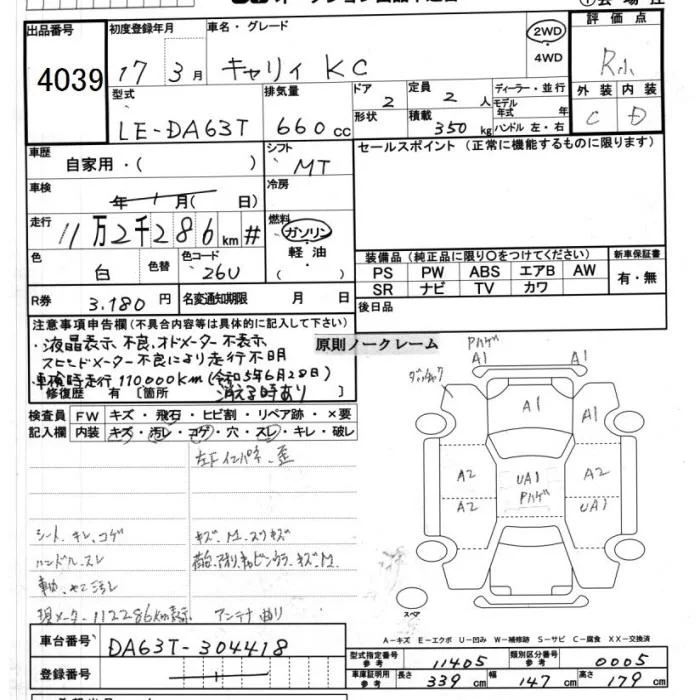 出品番号
4039
初度登録年月
17年3月
車名・グレード
キャリィ KC
2WD
・
4WD
評価点
R小
外装 内装
C D
型式
LE-DA63T
排気量
660cc
ドア
2
形状
定員
2人
積載
350kg
ディーラー・並行
モデル年式 年
ハンドル 左・右
車歴
自家用・( )
シフト
MT
セールスポイント(正常に機能するものに限ります)
車検
年 月( 日)
冷房
走行
11万2千286km #
燃料
ガソリン
・
軽油
( )
色
白
色替
色コード
26U
装備品(純正品に限り〇をつけてください)
新車保証書
PS PW ABS エアB AW
SR ナビ TV カワ
有・無
R券 3.180円
名変通知期限 月 日
後日品
注意事項申告欄(不具合内容等は具体的に記入して下さい)
・液晶表示不良、オドメーター不表示
スピードメーター不良により走行不明
・車検時走行110000Km(令和5年6月28日)
消える時あり
修復歴 有 [箇所
原則ノークレーム
検査員記入欄
FW キズ・飛石・ヒビ割・リペア跡・×要
内装 キズ・汚レ・コゲ・穴・スレ・キレ・破レ
左Fインパネ、歪
シート、キレ、コゲ
ハンドル、スレ
キズ、凹、スリキズ
現メーター112286Km表示
アンテナ曲り
Pハゲ
A1 A1
A1 A1
A2 UA1 A2
Pハゲ
A2 UA1
スペア
A-キズ E-エクボ U-凹み W-補修跡 S-サビ C-腐食 XX-交換済
車台番号
DA63T-304418
登録番号
型式指定番号
参考
11405
類別区分番号
参考
0005
車庫証明用
参考
長さ 339cm 幅 147cm 高さ 179cm